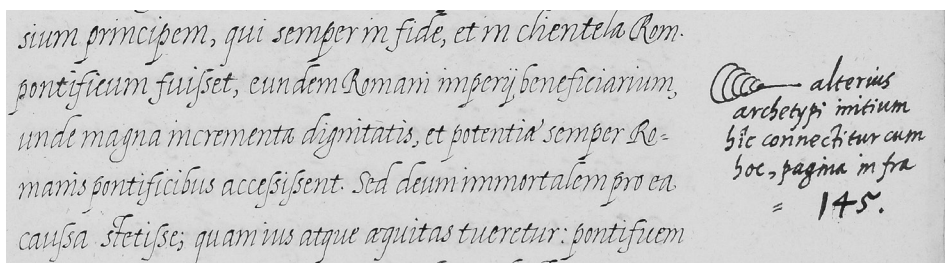 sium principem, qui semper in fide, et in clientela Rom.
pontificum fuisset, eundem Romani imperij beneficiarium,
unde magna incrementa dignitatis, et potentiæ semper Ro=
manis pontificibus accessissent. Sed deum immortalem pro ea
caussa stetisse; quam ius atque æquitas tueretur: pontificem
alterius
archetypi initium
hic connectitur cum
hoc, pagina infra
= 145.